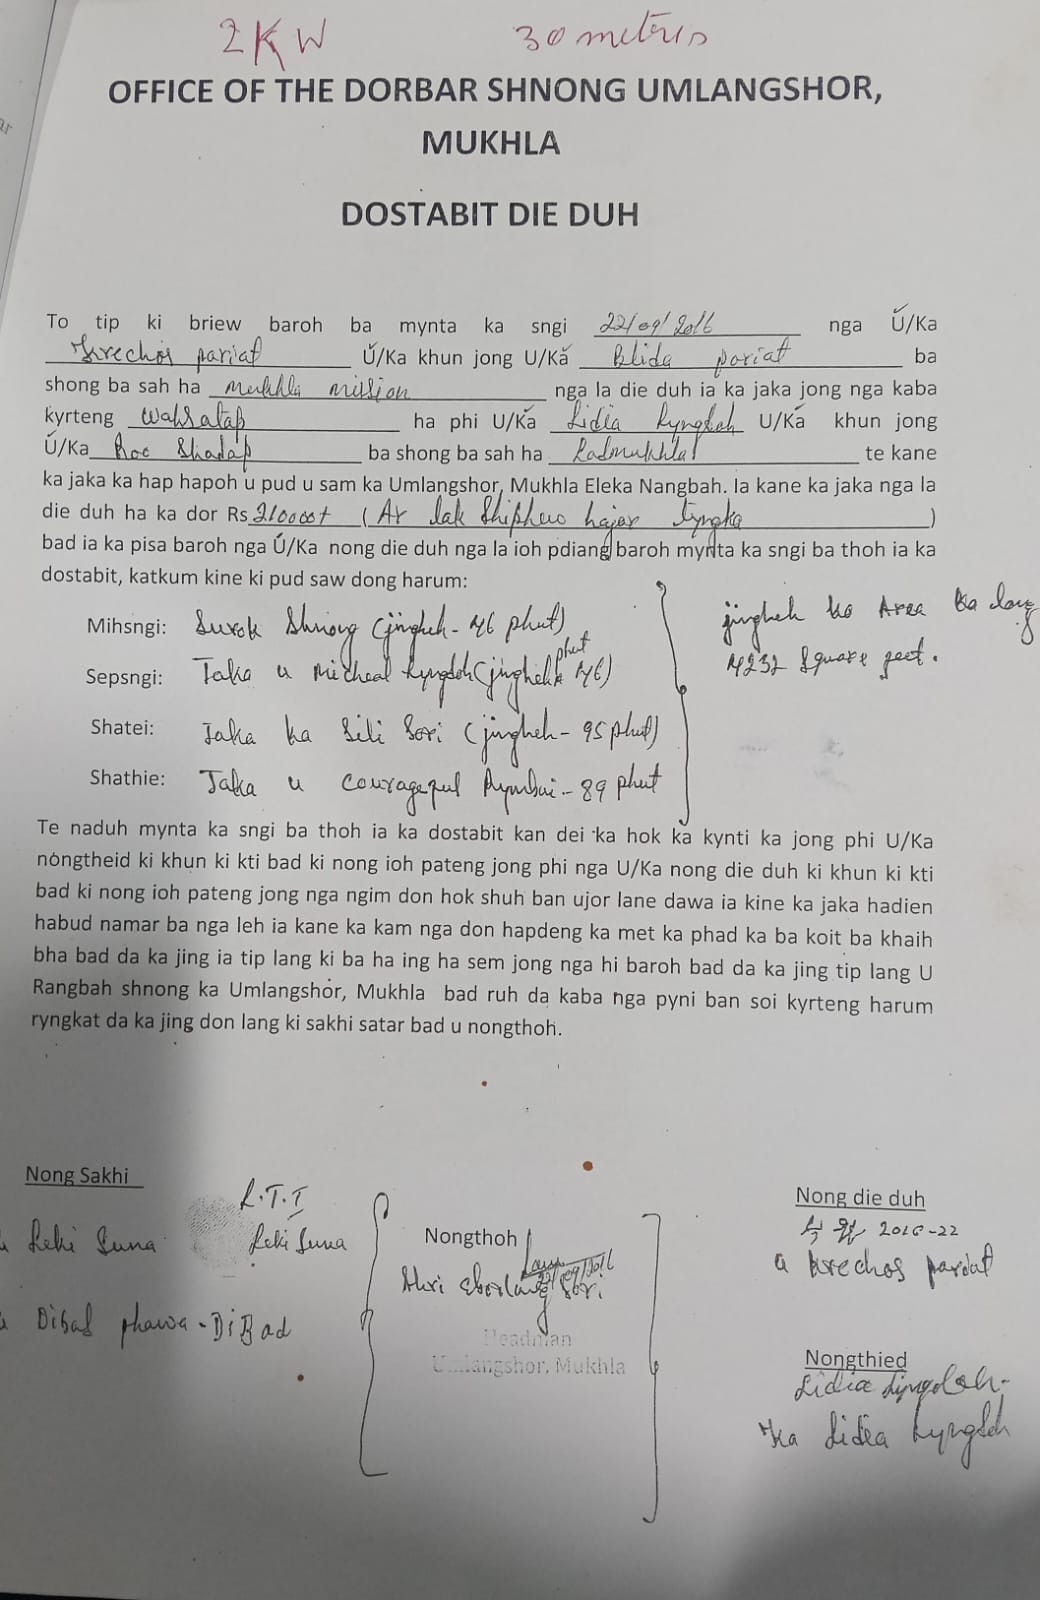 2KW 30 metris
OFFICE OF THE DORBAR SHNONG UMLANGSHOR,
MUKHLA
DOSTABIT DIE DUH
To tip ki briew baroh ba mynta ka sngi 22/09/2016 nga Ǔ/Ka
pariat Ǔ/Ka khun jong U/Kǎ Blida pariat ba
shong ba sah ha mukhla mission nga la die duh ia ka jaka jong nga kaba
kyrteng Wahsatap ha phi U/Kǎ Lidia Lyngdoh U/Kǎ khun jong
Ǔ/Ka Roc Shadap ba shong ba sah ha Ladmukhla te kane
ka jaka ka hap hapoh u pud u sam ka Umlangshor, Mukhla Eleka Nangbah. Ia kane ka jaka nga la
die duh ha ka dor Rs 210000t (Ar lak Shiphew hajar tyngka)
bad ia ka pisa baroh nga Ǔ/Ka nong die duh nga la ioh pdiang baroh mynta ka sngi ba thoh ia ka
dostabit, katkum kine ki pud saw dong harum:
Mihsngi: Surok Shnong (jingheh - 46 phut)
Sepsngi: Jaka u Micheal Lyngdoh (jingheh 46 phut)
Shatei: Jaka ka Bili Sori (jingheh - 95 phut)
Shathie: Jaka u Courageful Rymbai - 89 phut
jingheh ka Area ka long
4232 Square feet.
Te naduh mynta ka sngi ba thoh ia ka dostabit kan dei ka hok ka kynti ka jong phi U/Ka
nongtheid ki khun ki kti bad ki nong ioh pateng jong phi nga U/Ka nong die duh ki khun ki kti
bad ki nong ioh pateng jong nga ngim don hok shuh ban ujor lane dawa ia kine ka jaka hadien
habud namar ba nga leh ia kane ka kam nga don hapdeng ka met ka phad ka ba koit ba khaih
bha bad da ka jing ia tip lang ki ba ha ing ha sem jong nga hi baroh bad da ka jing tip lang U
Rangbah shnong ka Umlangshor, Mukhla bad ruh da kaba nga pyni ban soi kyrteng harum
ryngkat da ka jing don lang ki sakhi satar bad u nongthoh.
Nong Sakhi
L.T.I
Leki Suna Leki Suna
Dibad phawa - DiBad
Nongthoh
22/09/2016
Shri Eborlang Sori
Headman
Umlangshor, Mukhla
Nong die duh
2016-22
u pariat
Nongthied
Lidia Lyngdoh.
Ka Lidia Lyngdoh